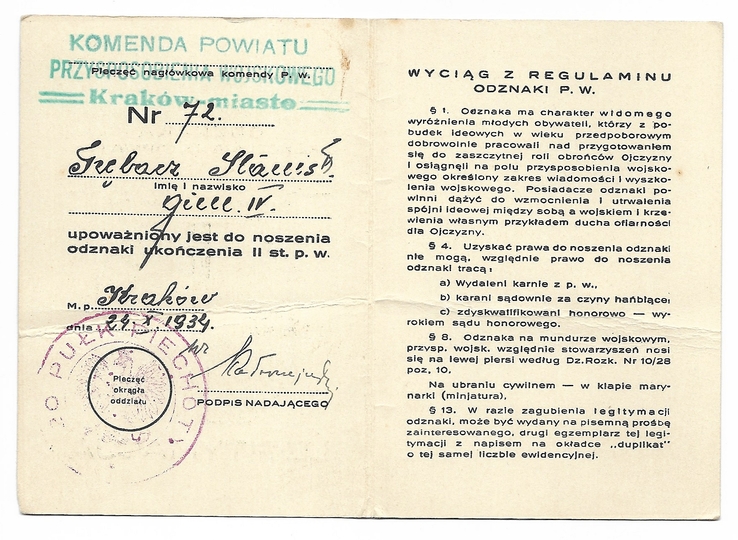 KOMENDA POWIATU
PRZYSPOSOBIENIA WOJSKOWEGO
Pieczęć nagłówkowa komendy P. W.
Kraków-miasto
Nr 72.
Trębacz Stanisł.
Imię i nazwisko
gimn. IV.
upoważniony jest do noszenia
odznaki ukończenia II st. p. w.
M. p. Kraków
dnia 24 X 1934.
PODPIS NADAJĄCEGO
20 PUŁK PIECHOTY
Pieczęć
okrągła
oddziału
WYCIĄG Z REGULAMINU
ODZNAKI P. W.
§ 1. Odznaka ma charakter widomego
wyróżnienia młodych obywateli, którzy z po-
budek ideowych w wieku przedpoborowym
dobrowolnie pracowali nad przygotowaniem
się do zaszczytnej roli obrońców Ojczyzny
i osiągnęli na polu przysposobienia wojsko-
wego określony zakres wiadomości i wyszko-
lenia wojskowego. Posiadacze odznaki po-
winni dążyć do wzmocnienia i utrwalenia
spójni ideowej między sobą a wojskiem i krze-
wienia własnym przykładem ducha ofiarności
dla Ojczyzny.
§ 4. Uzyskać prawa do noszenia odznaki
nie mogą, względnie prawo do noszenia
odznaki tracą:
a) Wydaleni karnie z p. w.,
b) karani sądownie za czyny hańbiące;
c) zdyskwalifikowani honorowo — wy-
rokiem sądu honorowego.
§ 8. Odznaka na mundurze wojskowym,
przysp. wojsk. względnie stowarzyszeń nosi
się na lewej piersi według Dz. Rozk. Nr 10/28
poz. 10.
Na ubraniu cywilnem — w klapie mary-
narki (minjatura).
§ 13. W razie zagubienia legitymacji
odznaki, może być wydany na pisemną prośbę
zainteresowanego, drugi egzemplarz tej legi-
tymacji z napisem na okładce „duplikat"
o tej samej liczbie ewidencyjnej.